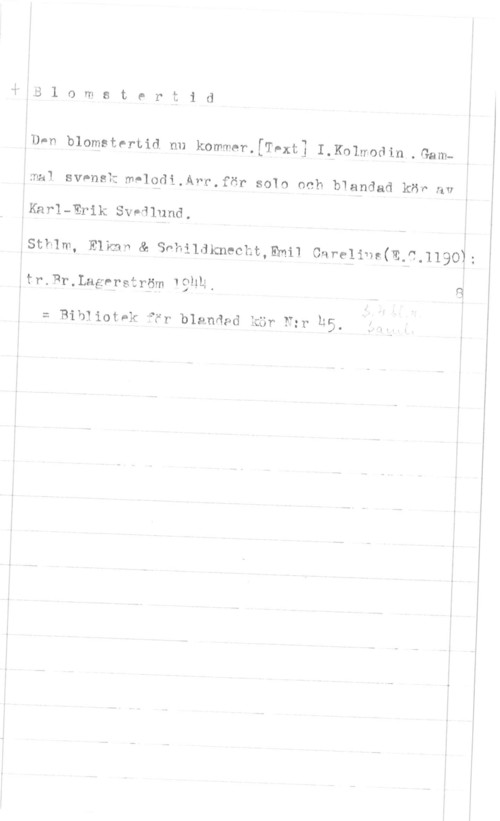 + B l o m s t e r t i d
Den blomstertid nu kommer.[Text] I.Kolmodin . Gam-
mal svensk melodi.Arr.för solo och blandad kör av
Karl-Erik Svedlund.
Sthlm, Elkan & Schildknecht,Emil Carelius(E.C.1190):
tr.Br.Lagerström 1944. 8
= Bibliotek för blandad kör N:r 45.